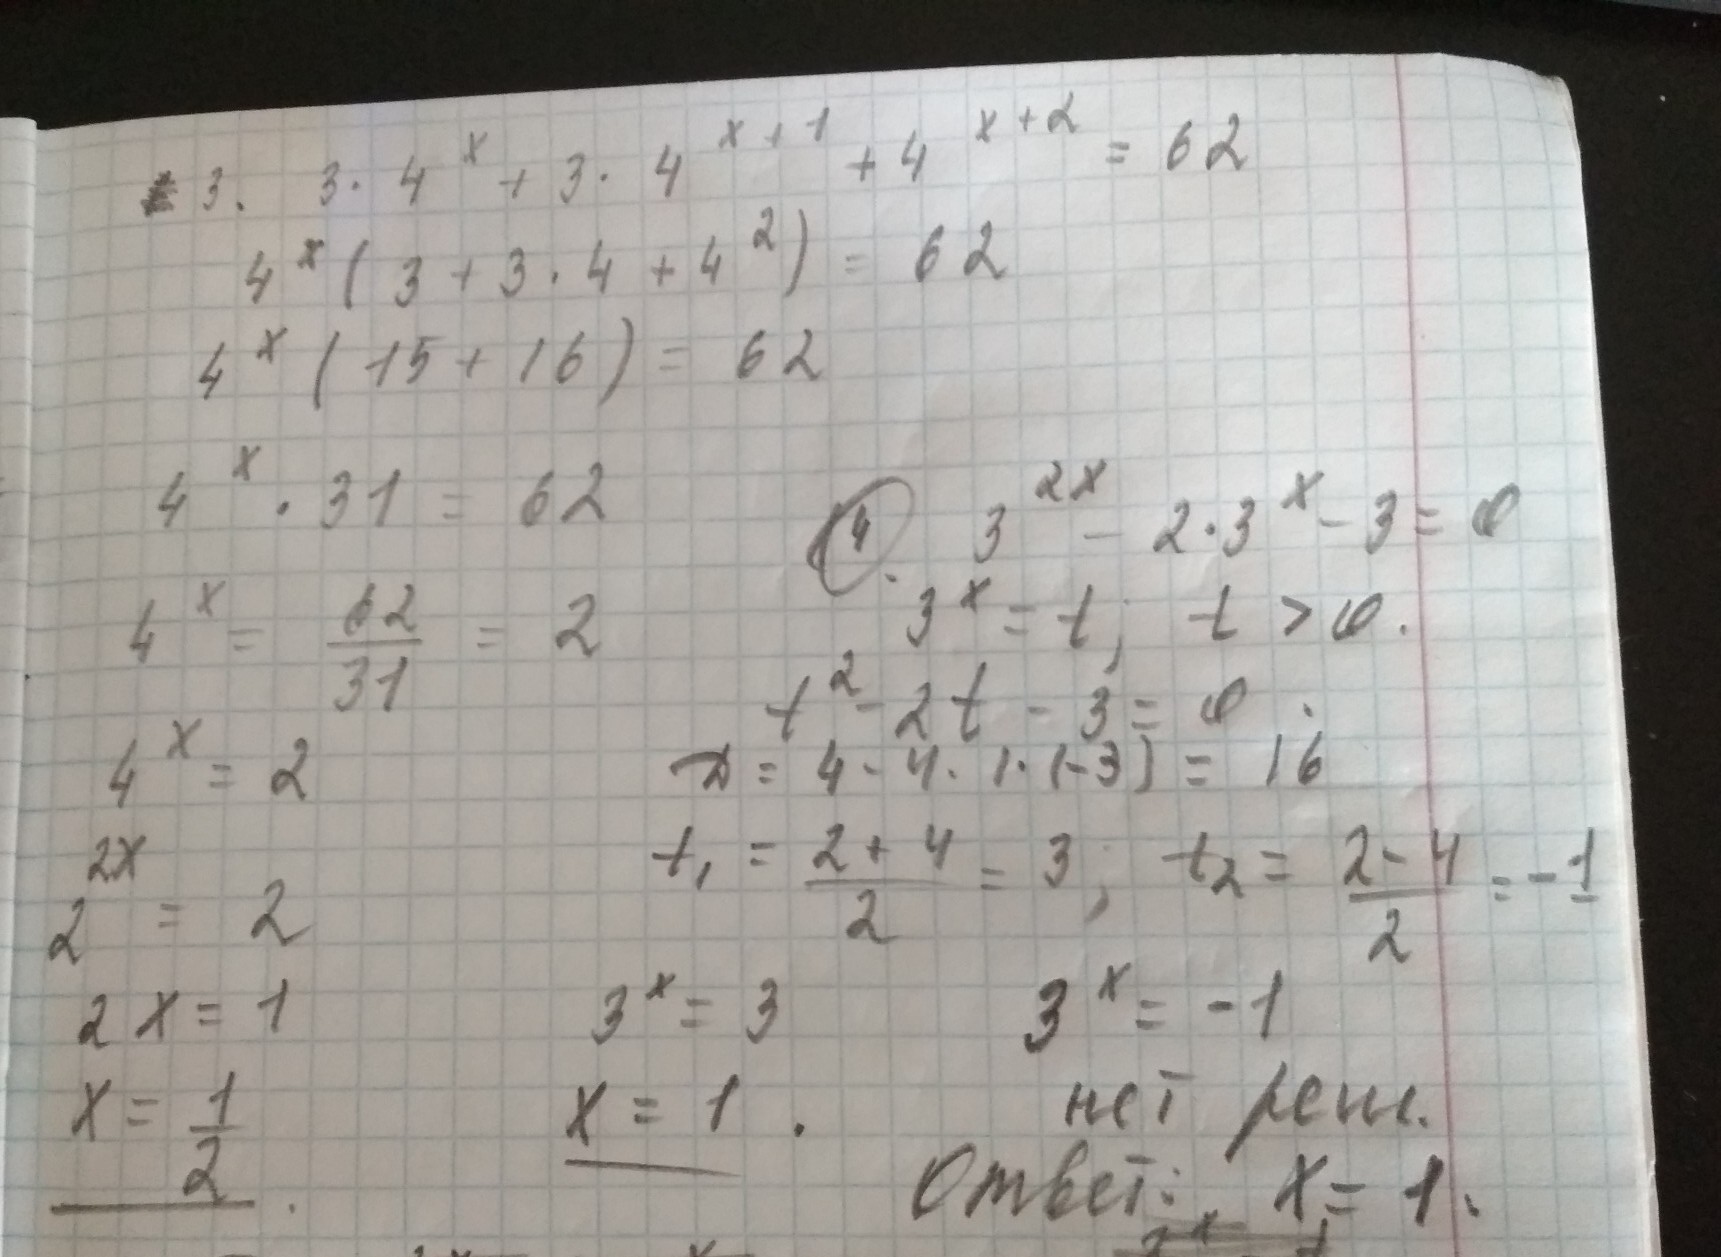 3. 3·4^x + 3·4^(x+1) + 4^(x+2) = 62
4^x (3 + 3·4 + 4^2) = 62
4^x (15 + 16) = 62
4^x · 31 = 62
4^x = 62/31 = 2
4^x = 2
2^(2x) = 2
2x = 1
x = 1/2.
4. 3^(2x) - 2·3^x - 3 = 0
3^x = t; t > 0.
t^2 - 2t - 3 = 0.
D = 4 - 4·1·(-3) = 16
t₁ = (2+4)/2 = 3; t₂ = (2-4)/2 = -1
3^x = 3 3^x = -1
x = 1. нет реш.
Ответ: x = 1.